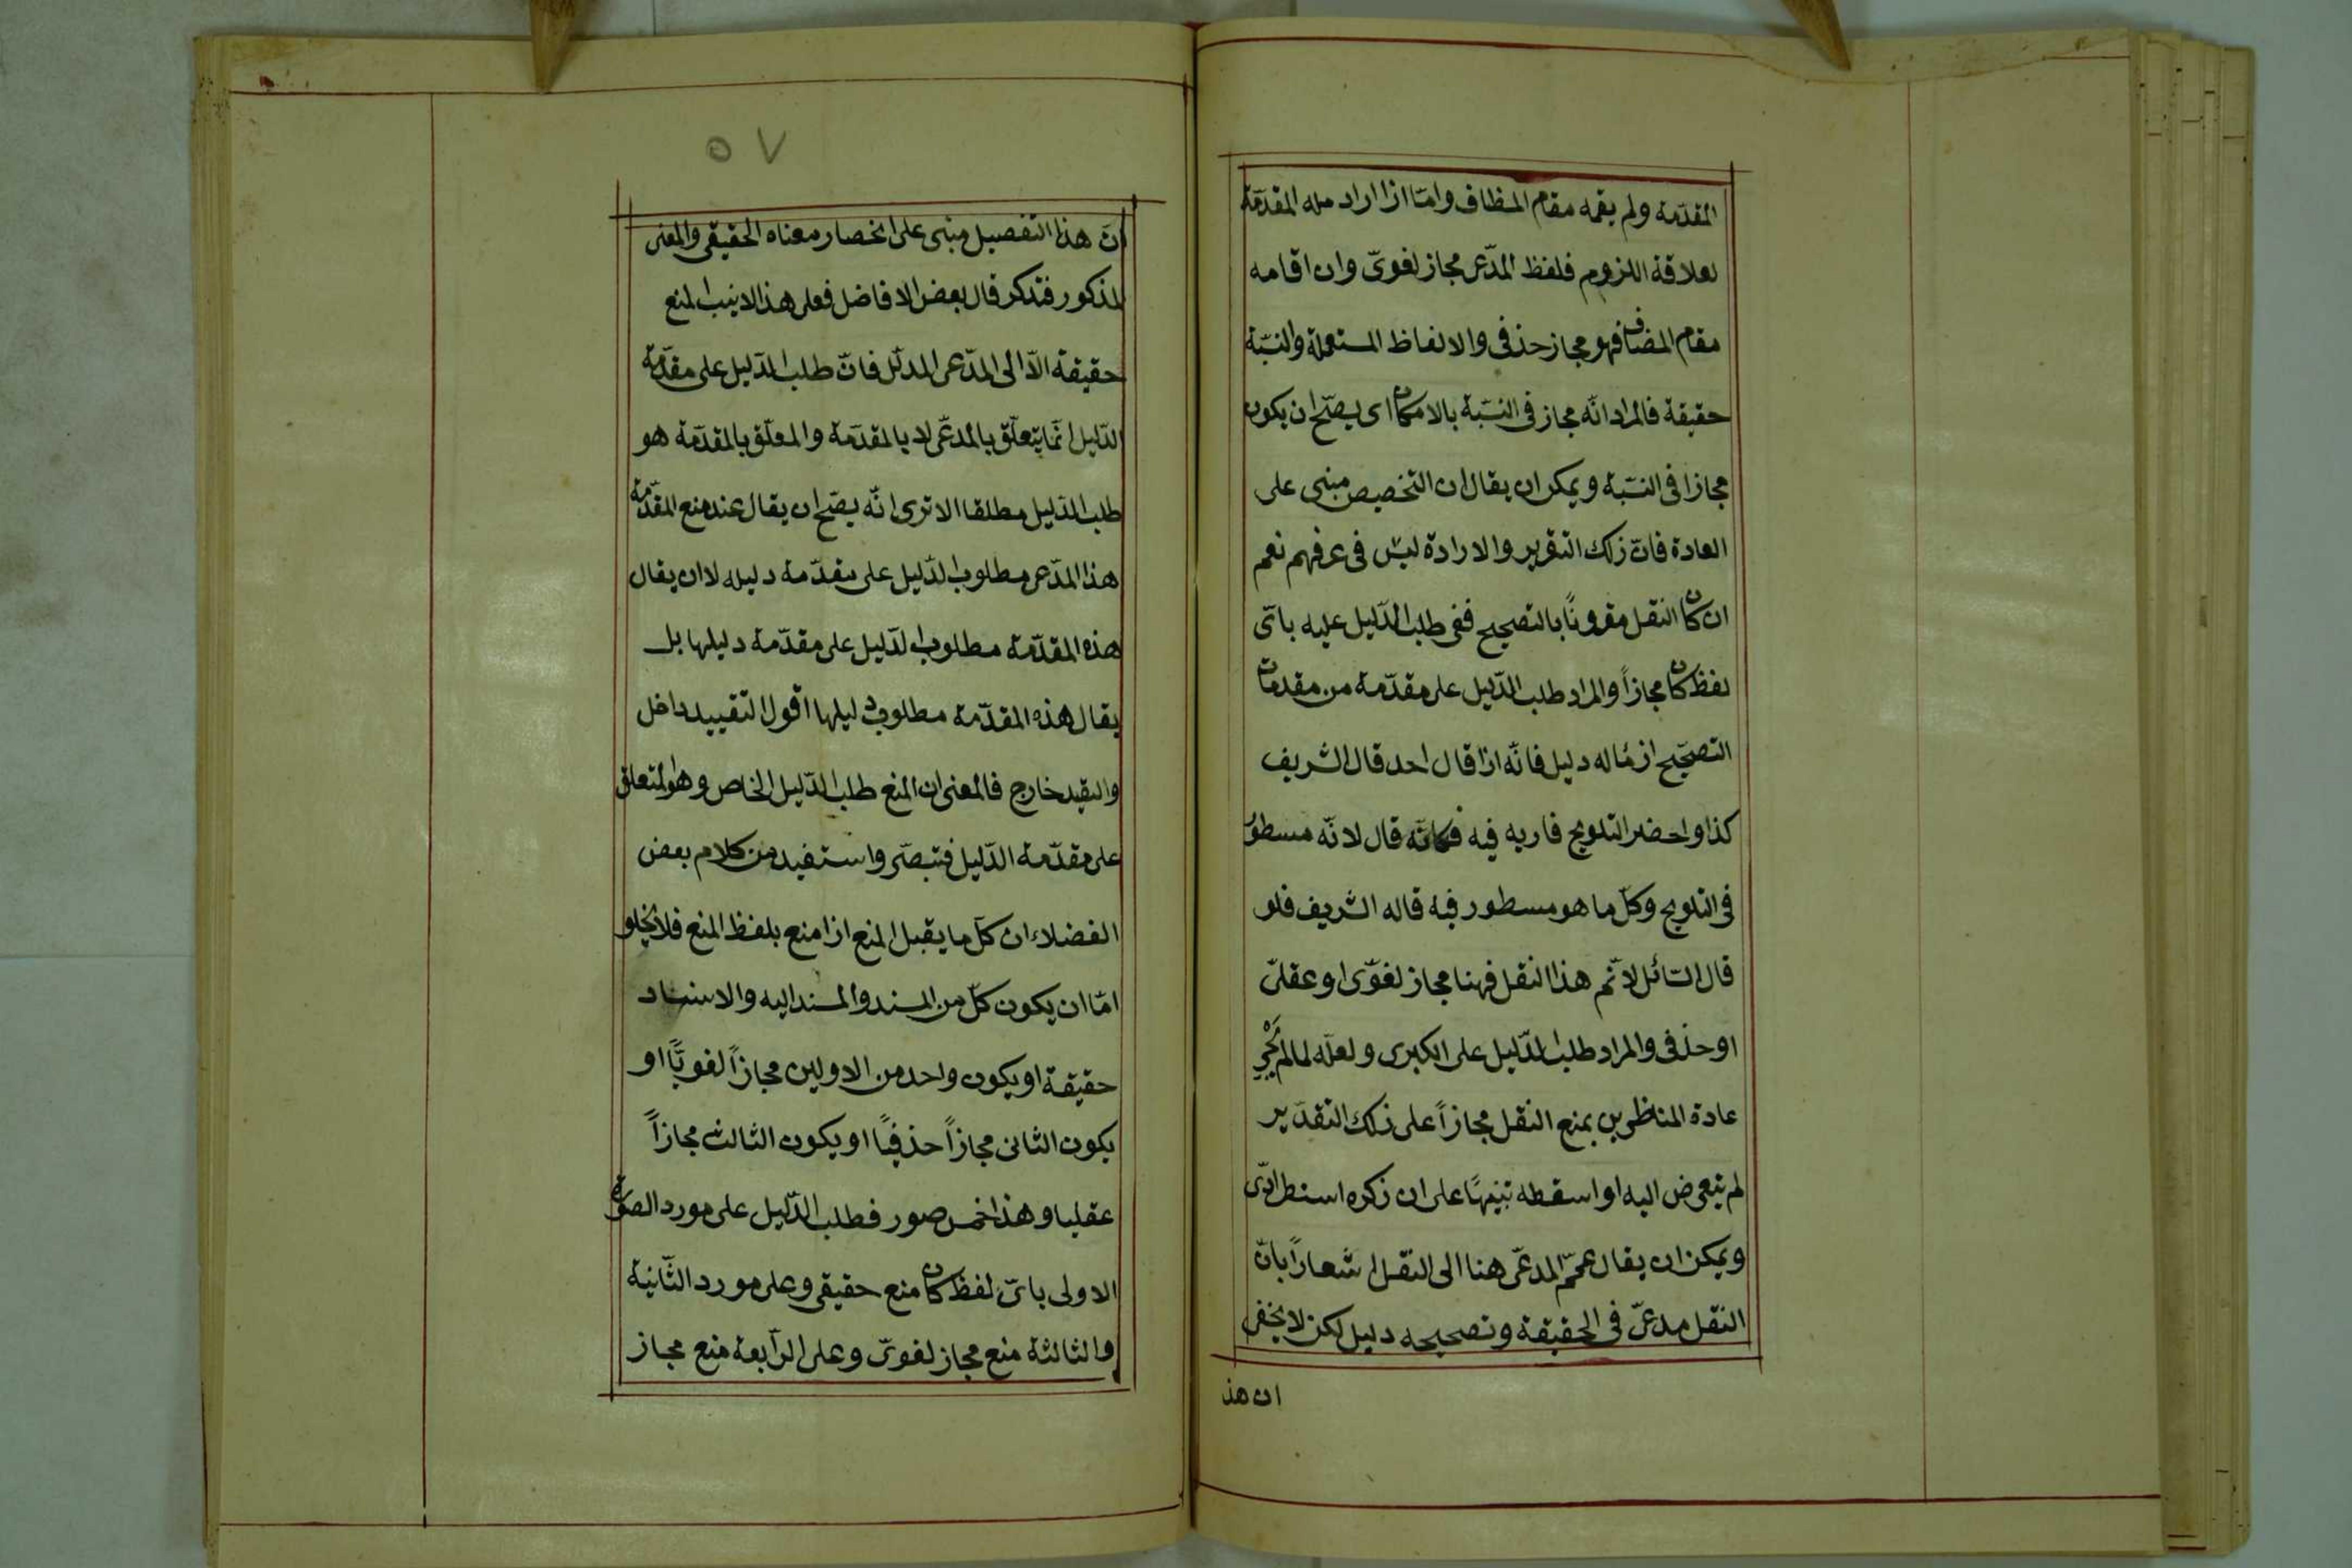 المقدّمة ولم يقمه مقام المظاف وامّا اذا اراد منه المقدّمة
لعلاقة اللزوم فلفظ المدّعى مجاز لغوىّ وان اقامه
مقام المضاف فهو مجاز حذفى والالفاظ المستعملة والنسبّة
حقيقة فالمراد انّه مجاز فى النسبّة بالامكان اى يصحّ ان يكون
مجازا فى النسبّة ويمكن ان يقال ان التخصيص مبنى على
العادة فانّ ذلك التقرير والارادة ليس فى عرفهم نعم
ان كان النقل مقرونًا بالتصحيح ففى طلب الدّليل عليه باىّ
لفظ كان مجازاً والمراد طلب الدّليل على مقدّمة من مقدمات
التصحّيح اذ مٔاله دليل فانّه اذا قال احد قال الشريف
كذا واحضر التلويح فاريه فيه فكانّه قال لانّه مسطور
فى التلويح وكلّ ما هو مسطور فيه قاله الشريف فلو
قال السّائل لانّم هذا النقل فهنا مجاز لغوّى او عقلىّ
او حذفى والمراد طلب الدّليل على الكبرى ولعلّه لما لم يَجْرِ
عادة المناظرين بمنع النقل مجازاً على ذلك التقدّير
لم يتعرض اليه او اسقطه تنبيهًا على ان ذكره استطرادىّ
ويمكن ان يقال عمّم المدعّى هنا الى النقل اشعاراً بانّ
النقل مدعىّ فى الحقيقة وتصحيحه دليل لكن لا يخفى
ان هذ
٥٧
انّ هذا التفصيل مبنى على انحصار معناه الحقيقى والمعنى
المذكور فتذكر قال بعض الافاضل فعلى هذا لا ينسب المنع
حقيقة الاّ الى المدّعى المدلّل فانّ طلب الدّليل على مقدّمة
الدّليل انّما يتعلّق بالمدعّى لا بالمقدّمة والمعلّق بالمقدّمة هو
طلب الدّليل مطلقا الا ترى انّه يصحّ ان يقال عند منع المقدّمة
هذا المدّعى مطلوب الدّليل على مقدّمة دليله لا ان يقال
هذه المقدّمة مطلوب الدّليل على مقدّمة دليلها بل
يقال هذه المقدّمة مطلوب دليلها اقول التقييد داخل
والقيد خارج فالمعنى ان المنع طلب الدّليل الخاص وهو المتعلق
على مقدّمة الدّليل فتبصّر واستفيد من كلام بعض
الفضلاء ان كلّ ما يقبل المنع اذا منع بلفظ المنع فلا يخلو
امّا ان يكون كلّ من المسند والمسند اليه والاسناد
حقيقة او يكون واحد من الاولين مجازاً لغويًّا او
يكون الثانى مجازاً حذفيًّا او يكون الثالث مجازاً
عقليا وهذا خمس صور فطلب الدّليل على مورد الصورة
الاولى باىّ لفظ كان منع حقيقى وعلى مورد الثّانية
والثالثة منع مجاز لغوىّ وعلى الرّابعة منع مجاز